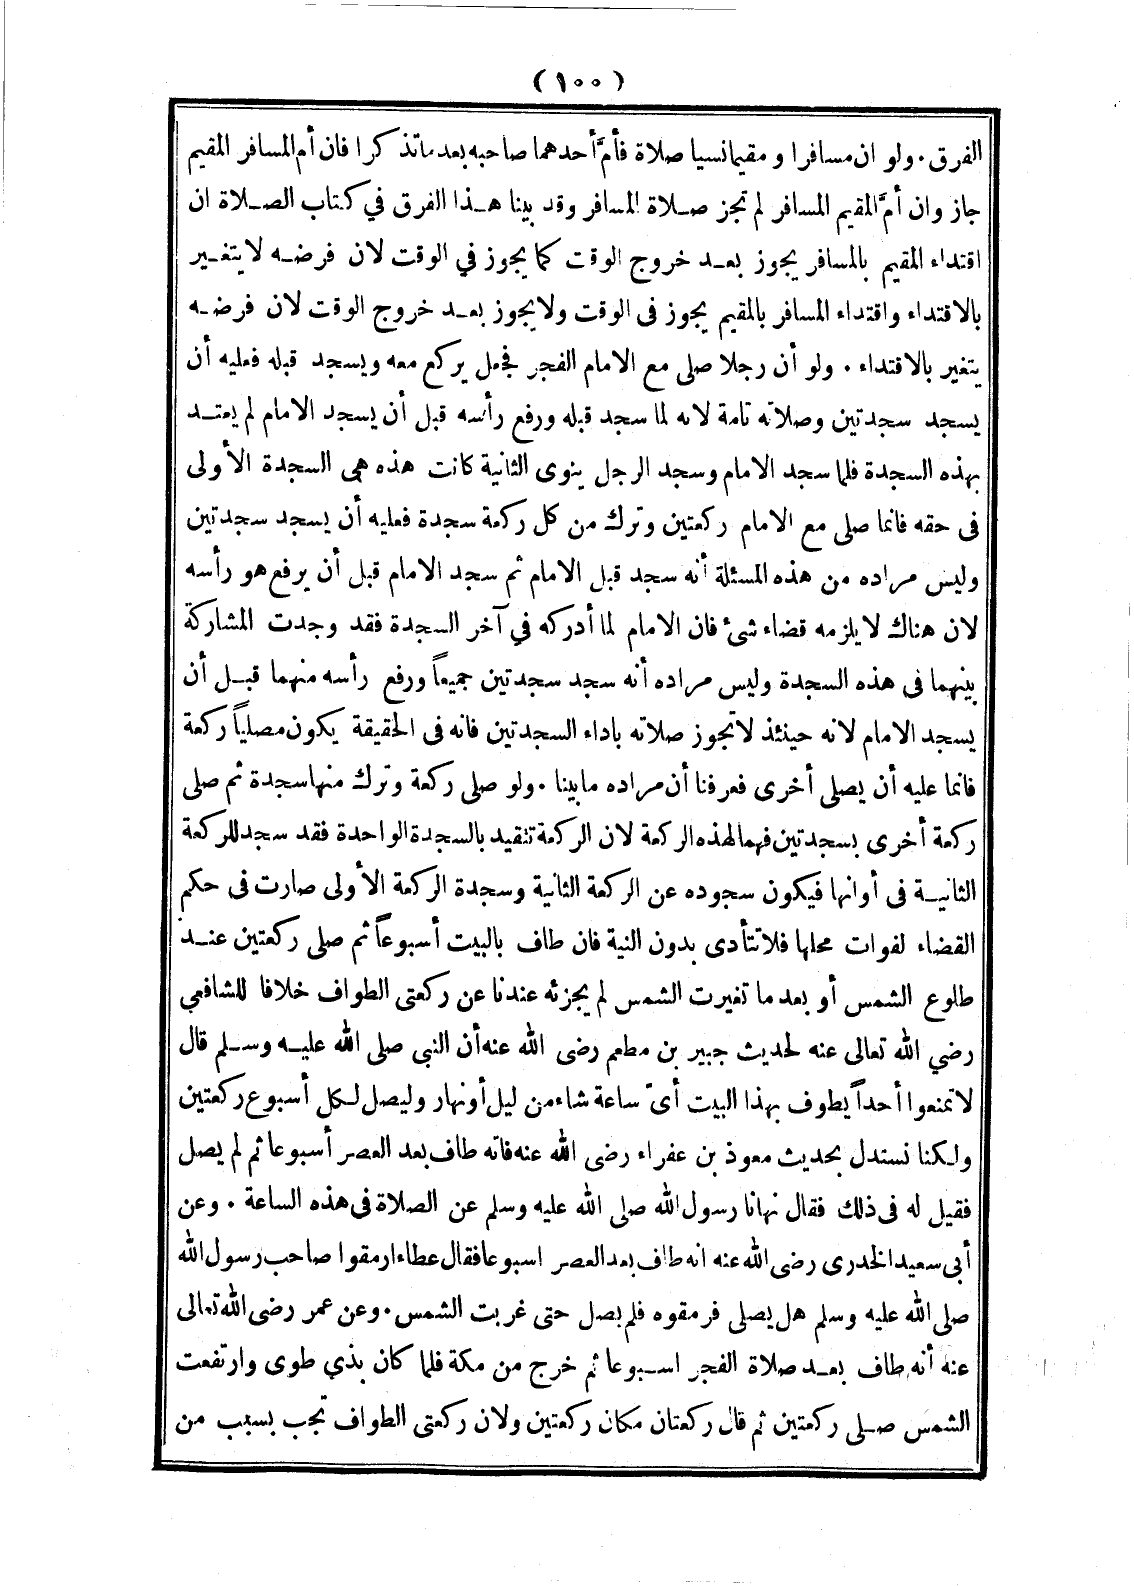 (١٠٠)
الفرق. ولو ان مسافرا و مقيما نسيا صلاة فأمَّ أحدهما صاحبه بعد ما تذكرا فان أم المسافر المقيم
جاز وان أمَّ المقيم المسافر لم تجز صلاة المسافر وقد بينا هذا الفرق في كتاب الصلاة ان
اقتداء المقيم بالمسافر يجوز بعد خروج الوقت كما يجوز في الوقت لان فرضه لا يتغير
بالاقتداء واقتداء المسافر بالمقيم يجوز فى الوقت ولا يجوز بعد خروج الوقت لان فرضه
يتغير بالاقتداء . ولو أن رجلا صلى مع الامام الفجر فجعل يركع معه ويسجد قبله فعليه أن
يسجد سجدتين وصلاته تامة لانه لما سجد قبله ورفع رأسه قبل أن يسجد الامام لم يعتد
بهذه السجدة فلما سجد الامام وسجد الرجل ينوى الثانية كانت هذه هى السجدة الأولى
فى حقه فانما صلى مع الامام ركعتين وترك من كل ركعة سجدة فعليه أن يسجد سجدتين
وليس مراده من هذه المسئلة أنه سجد قبل الامام ثم سجد الامام قبل أن يرفع هو رأسه
لان هناك لا يلزمه قضاء شئ فان الامام لما أدركه في آخر السجدة فقد وجدت المشاركة
بينهما فى هذه السجدة وليس مراده أنه سجد سجدتين جميعاً ورفع رأسه منهما قبل أن
يسجد الامام لانه حينئذ لا تجوز صلاته باداء السجدتين فانه فى الحقيقة يكون مصلياً ركعة
فانما عليه أن يصلى أخرى فعرفنا أن مراده ما بينا . ولو صلى ركعة وترك منها سجدة ثم صلى
ركعة أخرى بسجدتين فهما لهذه الركعة لان الركعة تتقيد بالسجدة الواحدة فقد سجد للركعة
الثانية فى أوانها فيكون سجوده عن الركعة الثانية وسجدة الركعة الأولى صارت فى حكم
القضاء لفوات محلها فلا تتأدى بدون النية فان طاف بالبيت أسبوعاً ثم صلى ركعتين عند
طلوع الشمس أو بعد ما تغيرت الشمس لم يجزئه عندنا عن ركعتى الطواف خلافا للشافعي
رضي الله تعالى عنه لحديث جبير بن مطعم رضى الله عنه أن النبي صلى الله عليه وسلم قال
لا تمنعوا أحداً يطوف بهذا البيت أىّ ساعة شاء من ليل أو نهار وليصل لكل أسبوع ركعتين
ولكنا نستدل بحديث معوذ بن عفراء رضى الله عنه فانه طاف بعد العصر أسبوعا ثم لم يصل
فقيل له فى ذلك فقال نهانا رسول الله صلى الله عليه وسلم عن الصلاة فى هذه الساعة . وعن
أبى سعيد الخدرى رضى الله عنه انه طاف بعد العصر اسبوعا فقال عطاء ارمقوا صاحب رسول الله
صلى الله عليه وسلم هل يصلى فرمقوه فلم يصل حتى غربت الشمس . وعن عمر رضى الله تعالى
عنه أنه طاف بعد صلاة الفجر اسبوعا ثم خرج من مكة فلما كان بذي طوى وارتفعت
الشمس صلى ركعتين ثم قال ركعتان مكان ركعتين ولان ركعتى الطواف تجب بسبب من